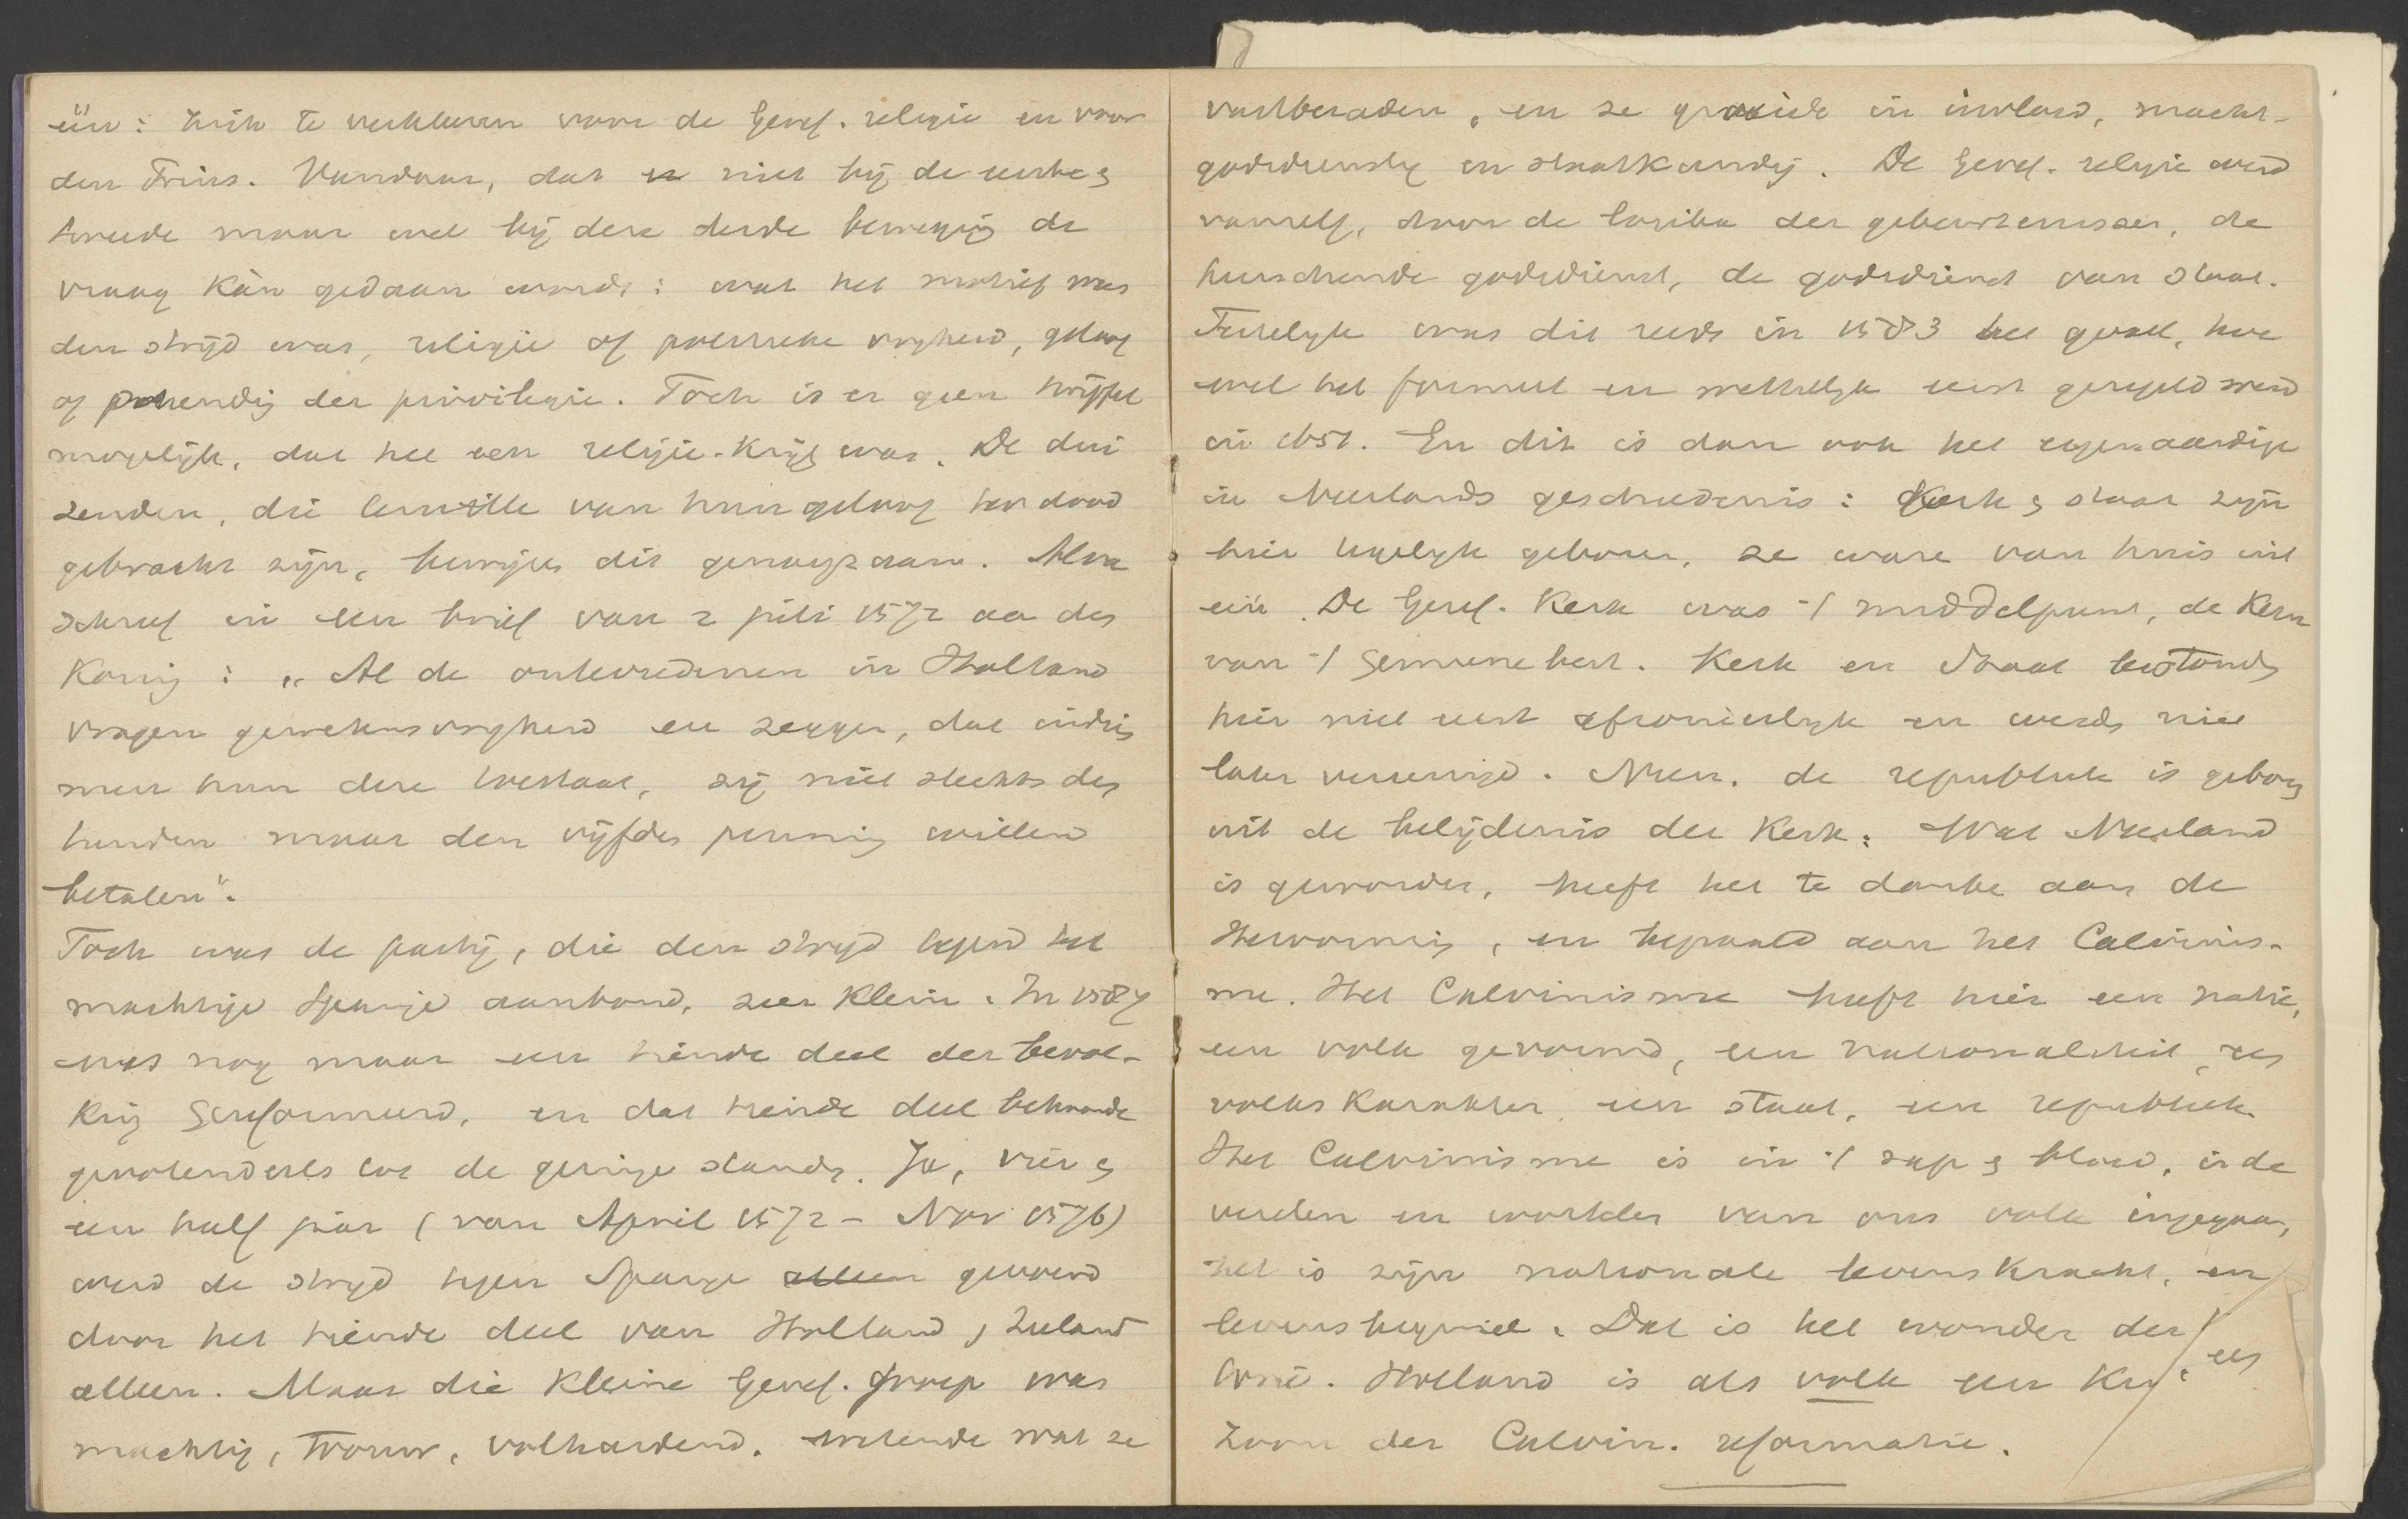 één: zich te verklaren voor de Geref. religie en voor
den Prins. Vandaar, dat er niet bij de eerste &
tweede maar wel bij deze derde beweging de
vraag kàn gedaan worde: wat het motief van
den strijd was, religie of politieke vryheid, geloof
of handhaving der privilegie. Toch is er geen twijfel
mogelijk, dat het een religie-krijg was. De dui
zenden, die terwille van hun geloof ter dood
gebracht zijn, bewijze dit genoegzaam. Alva
schreef in een brief van 2 juli 1572 aa den
Koning: „Al de ontevredenen in Holland
vragen gewetensvryheid en zeggen, dat indien
men hun deze toestaat, zij niet slechts den
tienden maar den vijfden penning willen
betalen".
Toch was de partij, die den strijd tegen het
machtige Spanje aanbond, zeer klein. In 1587
was nog maar een tiende deel der bevol-
king Gereformeerd, en dat tiende deel behoorde
grotendeels tot de geringe standen. Ja, vier &
een half jaar (van April 1572 - Nov 1576)
werd de strijd tegen Spanje alleen gevoerd
door het tiende deel van Holland & Zeeland
alleen. Maar die kleine Geref. groep was
machtig, trouw, volhardend, wetende wat ze
vastberaden, en ze groeide in invloed, macht
godsdienstig en staatkundig. De Geref. religie werd
vanzelf, door de loop der gebeurtenissen, de
heerschende godsdienst, de godsdienst van staat.
Feitelyk was dit reeds in 1583 het geval, hoe
wel het formeel en wettelyk eerst geregeld werd
in 1651. En dit is dan ook het eigenaardige
in Neerlands geschiedenis: Kerk & staat zijn
hier tegelyk geboren, ze ware van huis uit
één. De Geref. Kerk was 't middelpunt, de kern
van 't Gemeenebest. Kerk en Staat bestonden
hier niet eerst afzonderlyk en werden niet
later vereenigd. Neen, de republiek is geboren
uit de belijdenis der Kerk. Wat Neerland
is geworden, heeft het te danke aan de
Hervorming, en bepaald aan het Calvinis-
me. Het Calvinisme heeft hier een natie,
een volk gevormd, een nationaliteit, een
volkskarakter, een staat, een republiek.
Het Calvinisme is in 't sap & bloed, in de
vezelen en wortelen van ons volk ingegaan,
het is zijn nationale levenskracht, en
levensbeginsel. Dat is het wonder der
Holland is als volk een een
zoon der Calvin. reformatie.